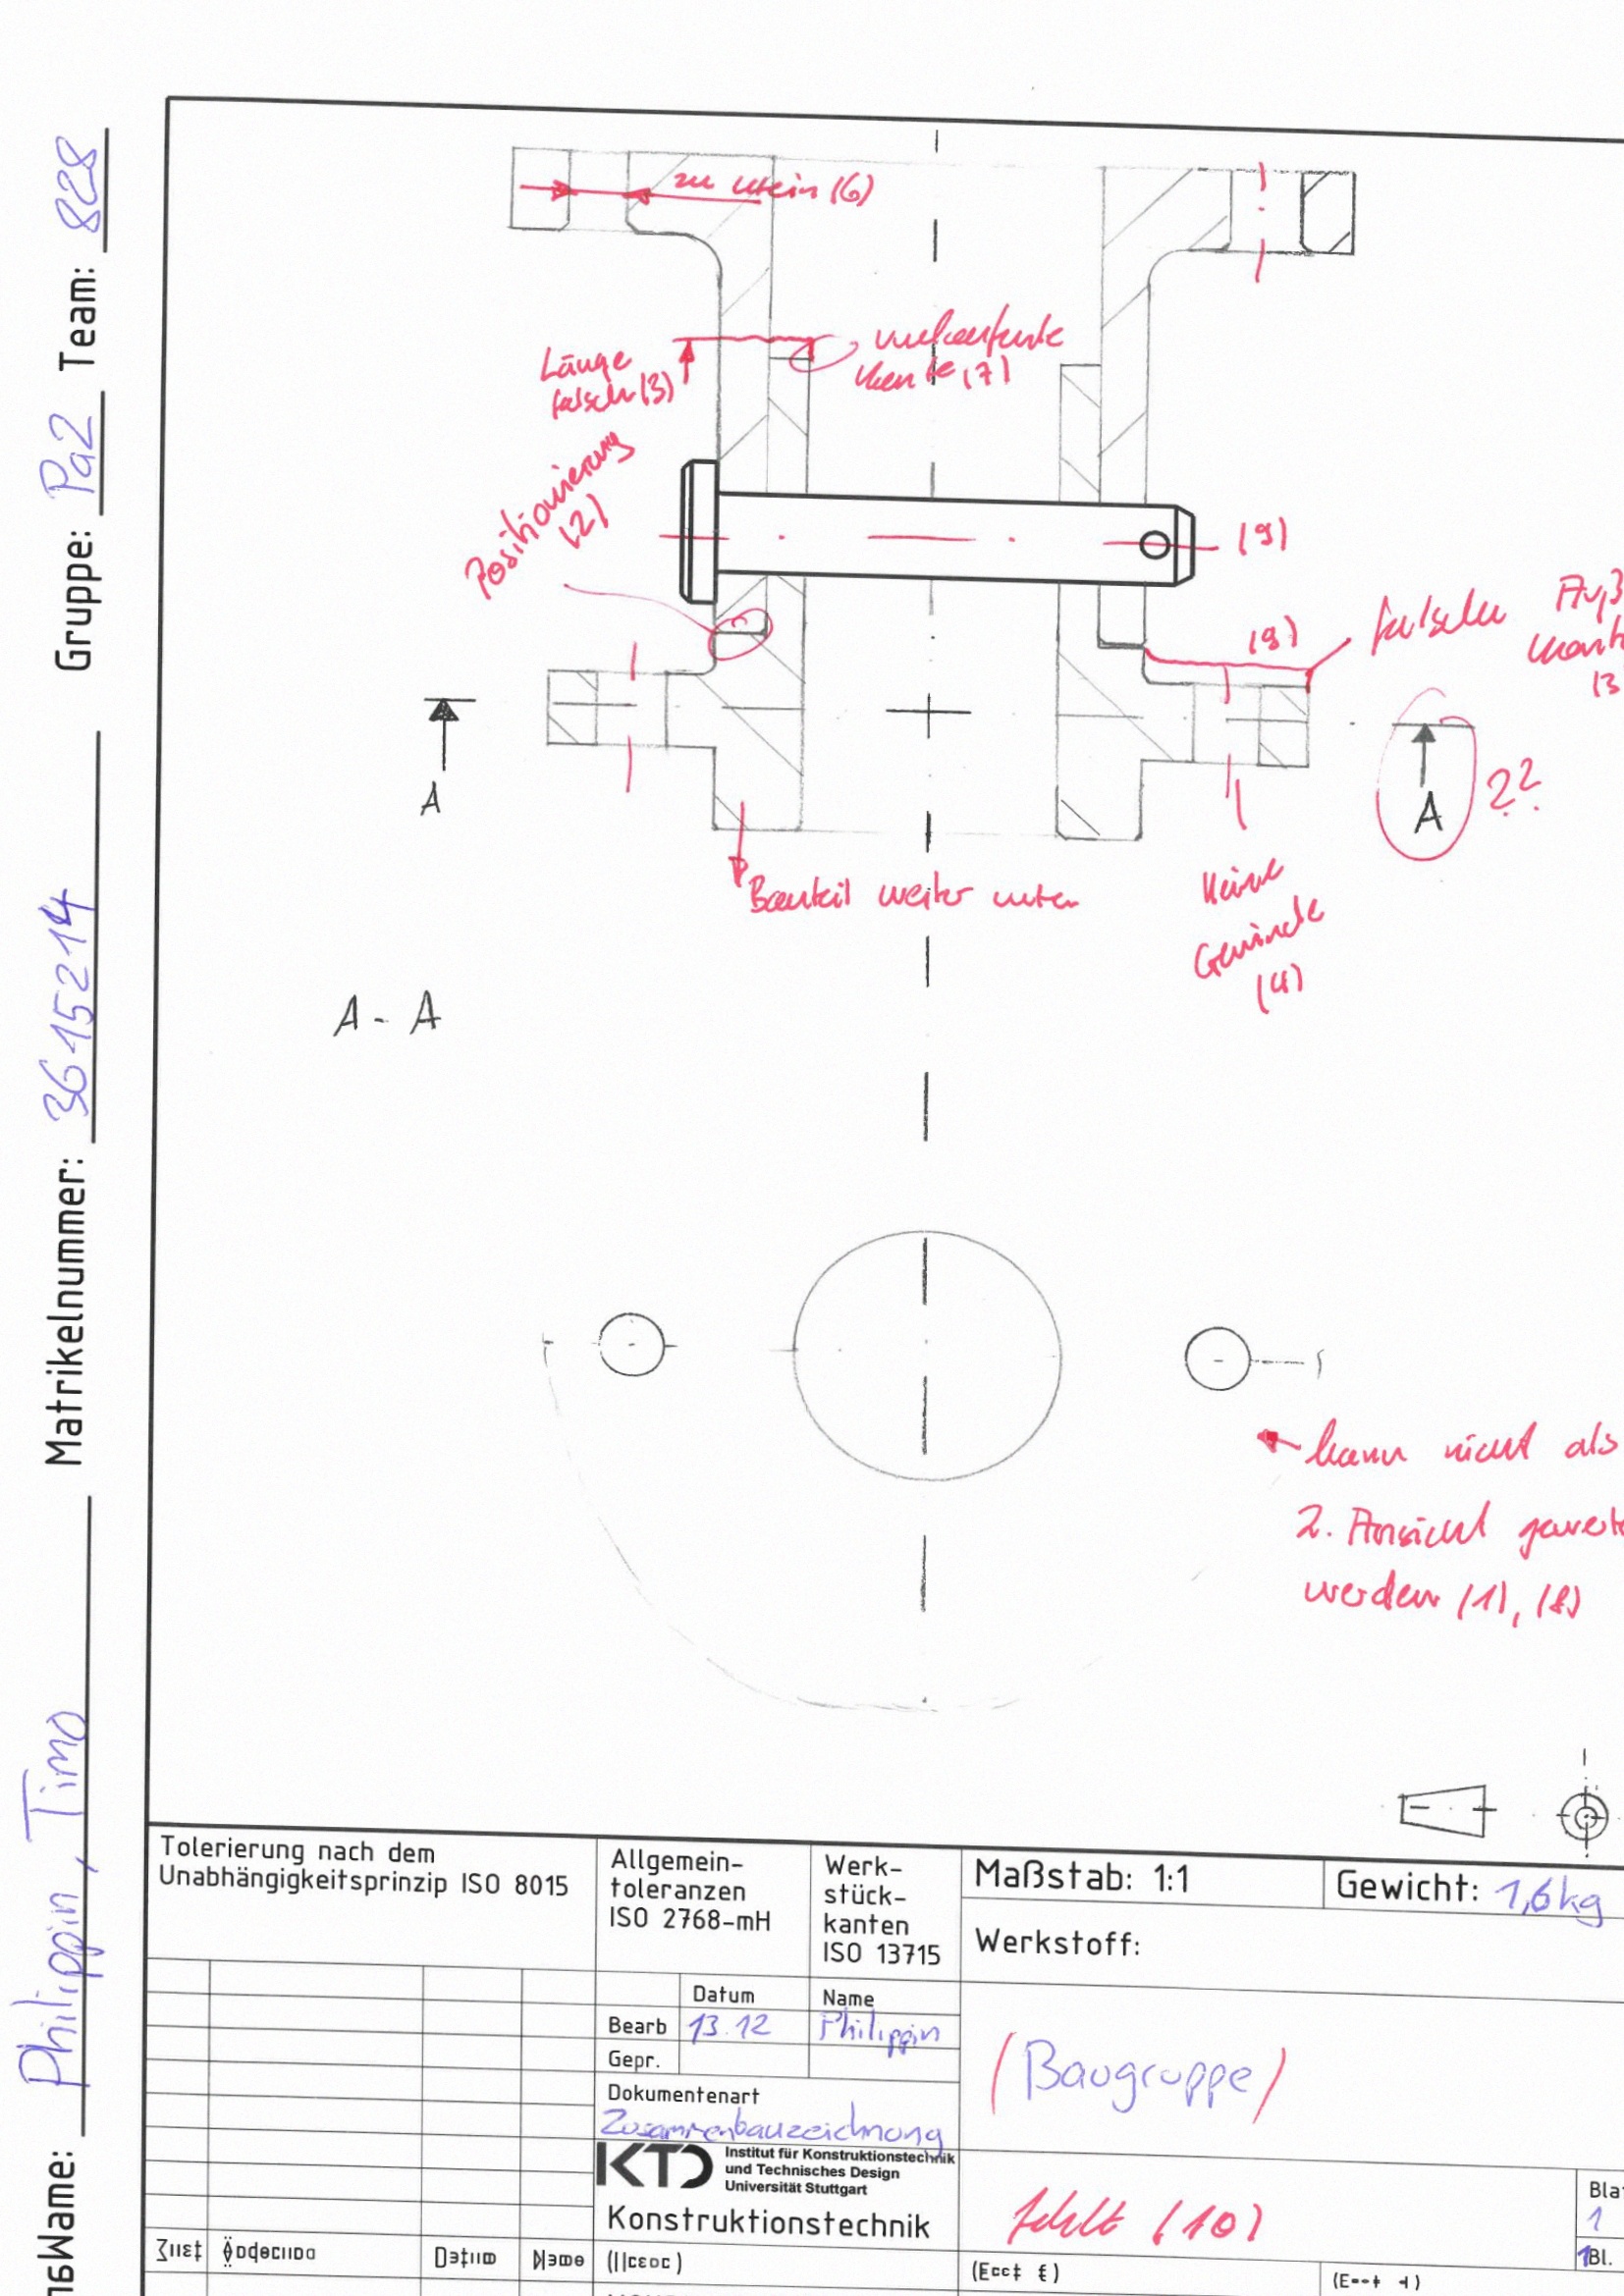 Name: Philippin, Timo Matrikelnummer: 3615214 Gruppe: Pa2 Team: 828
zu klein (6)
Länge
falsch (3)
unbekannte
Kante (7)
Positionierung
(2)
(9)
(9)
falscher
(3
A
A
??
Bauteil weiter unten
Keine
Gewinde
(4)
A - A
kann nicht als
2. Ansicht gewert
werden (1), (8)
Tolerierung nach dem
Unabhängigkeitsprinzip ISO 8015
Allgemein-
toleranzen
ISO 2768-mH
Werk-
stück-
kanten
ISO 13715
Maßstab: 1:1
Gewicht: 1,6kg
Werkstoff:
Datum
Name
Bearb
13.12
Philippin
Gepr.
(Baugruppe)
Dokumentenart
Zusammenbauzeichnung
KTD
Institut für Konstruktionstechnik
und Technisches Design
Universität Stuttgart
Konstruktionstechnik
fehlt (10)
Bla
1
1
Bl.